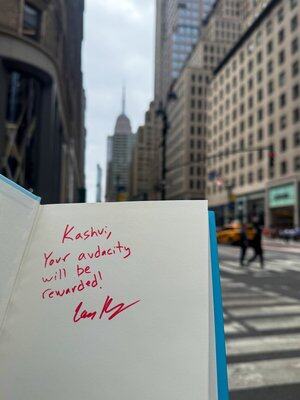 Kashvi,
Your audacity
will be
rewarded!